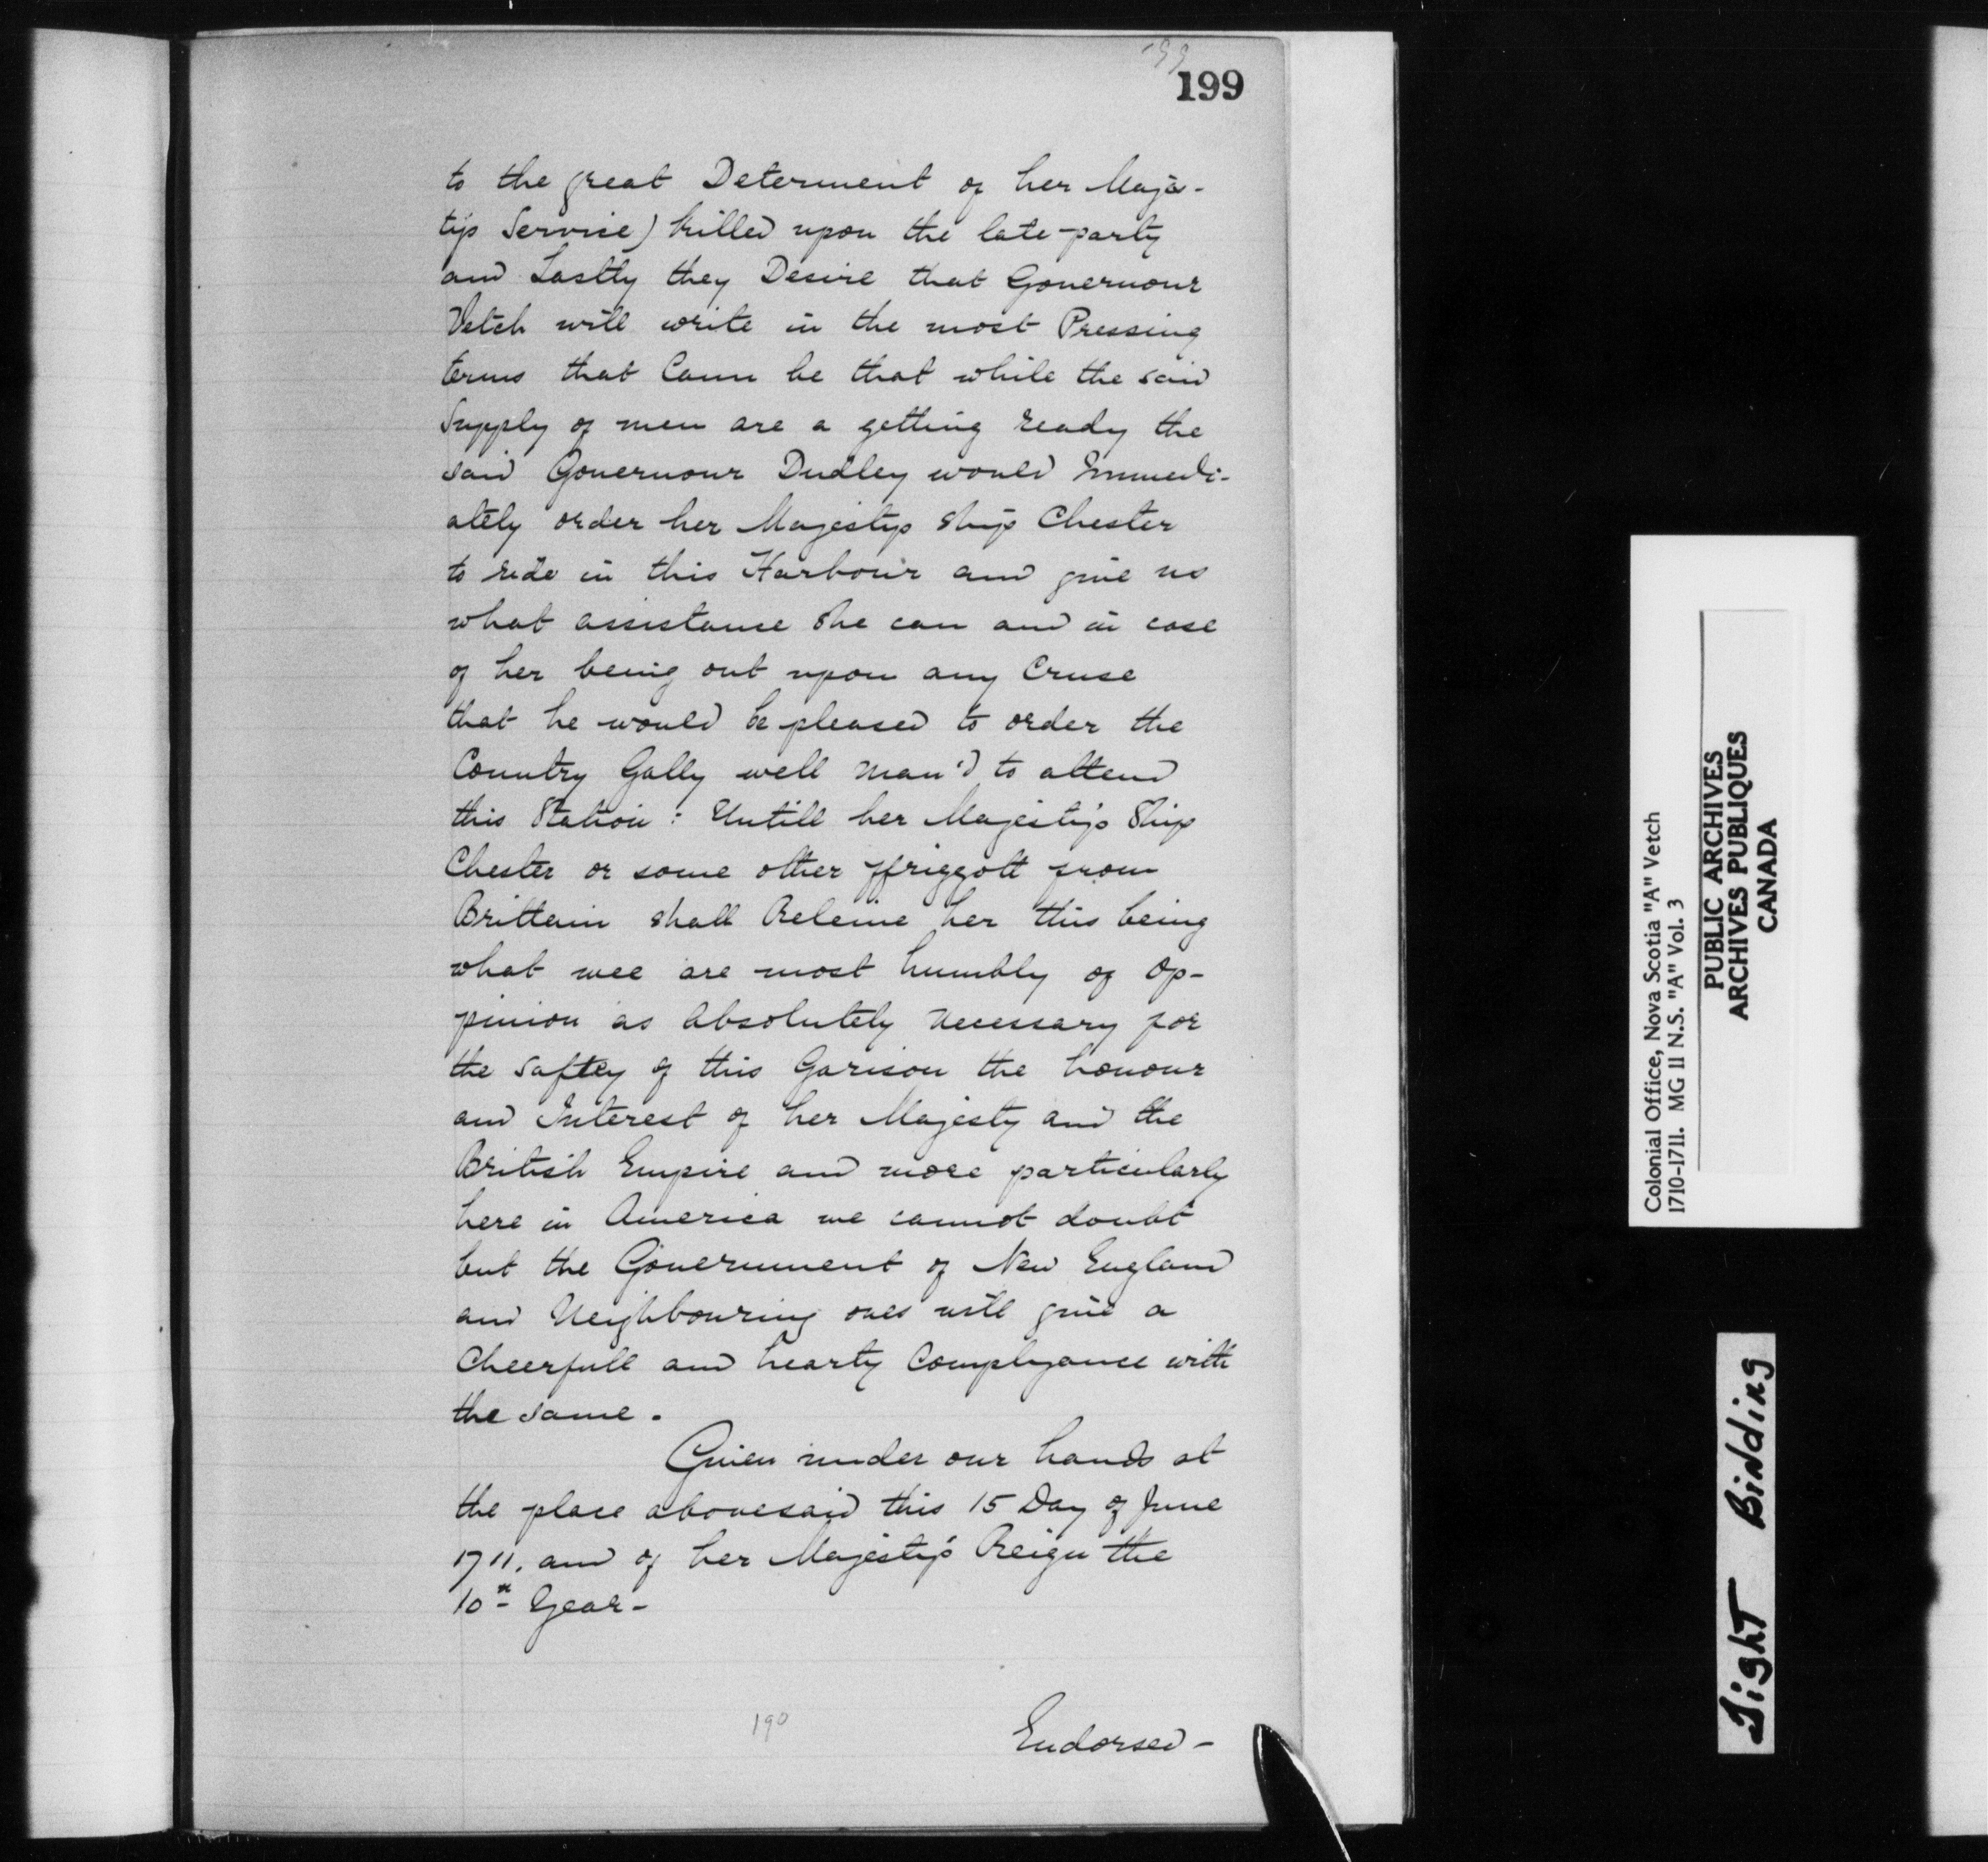 199
199
to the great Determent of her Maja-
tys Service) killed upon the late party
and Lastly they Desire that Governour
Vetch will write in the most Pressing
terms that Cann be that while the said
Supply of men are a getting ready the
said Governour Dudley would Immedi-
ately order her Majestys ship Chester
to ride in this Harbour and give us
what assistance she can and in case
of her being out upon any Cruse
that he would be pleased to order the
Country Gally well man'd to attend
this Station : Untill her Majesty's Ship
Chester or some other ffriggott from
Brittain shall Releive her this being
what wee are most humbly of Op-
pinion as Absolutely Necessary for
the saftey of this Garison the honour
and Interest of her Majesty and the
British Empire and more particularly
here in America we cannot doubt
but the Government of New England
and Neighbouring ones will give a
Cheerfull and hearty Complyance with
the same.
Given under our hands at
the place abovesaid this 15 Day of June
1711. and of her Majesty's Reign the
10th Year-
190
Endorsed-
Colonial Office, Nova Scotia "A" Vetch
1710-1711. MG 11 N.S. "A" Vol. 3
PUBLIC ARCHIVES
ARCHIVES PUBLIQUES
CANADA
Tight Binding